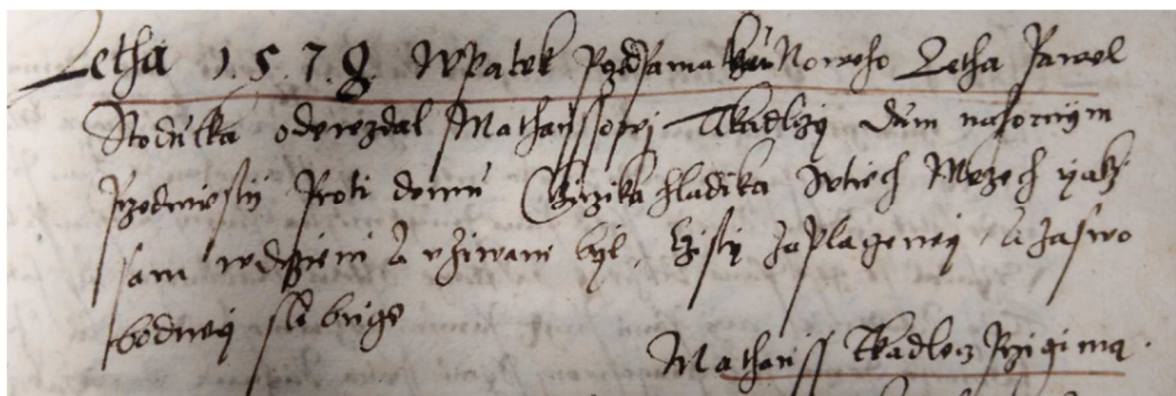 Letha 1.5.7.8. W Patek Przed samau Noweho Letha Pawel
Stodulka odewzdal Mathaussowi Tkadlczy dum na hornijm
Przedmiesty Proti domu Girzika hladika w tiech Mezech yakz
sam w drzeni a vžiwani byl, Cžisty Zaplageney, A Za swo
bodney slibuge
Mathauss Tkadlecz Przigima.